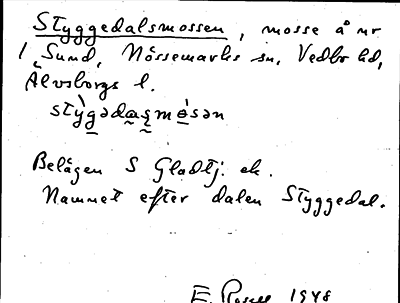 Styggedalsmossen, mosse å nr
1 Sund, Nössemarks sn, Vedbo hd,
Älvsborgs l.
stỳgədas̥mòsən
Belägen S Gladtj. ek.
Namnet efter dalen Styggedal.
E. Rosell 1948